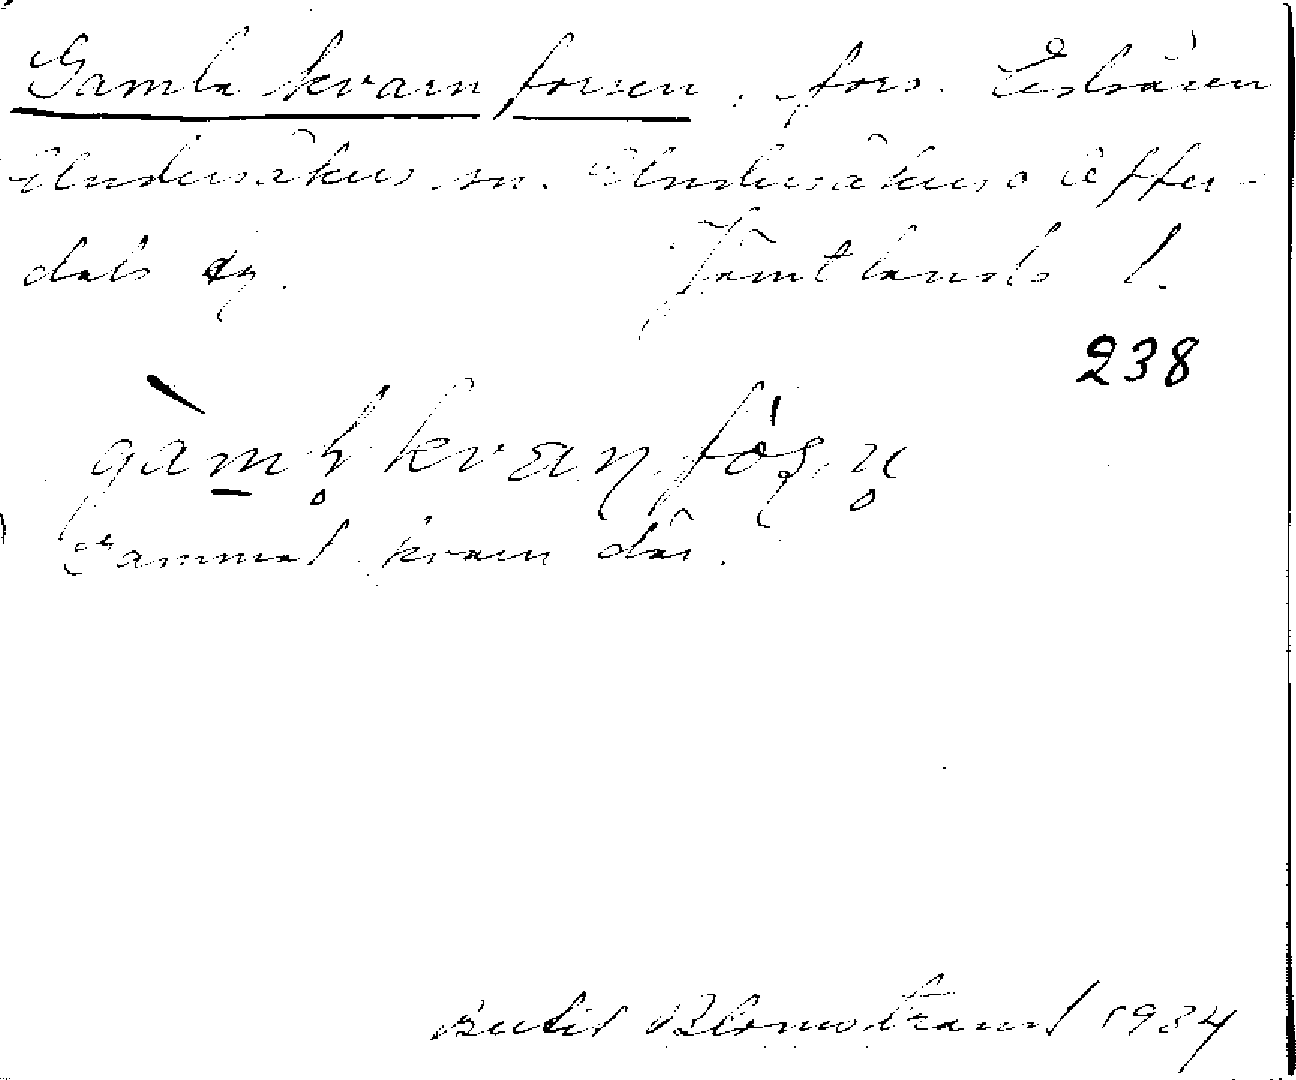 Gamla kvarnforsen, fors. Edsåsen
Undersåkers sn. Undersåkers o Offer-
dals tg. Jämtlands l.
238
gàml̥ kvaɳ fós̩ n̥
Gammal kvarn där.
Bertil Blomstrand 1934